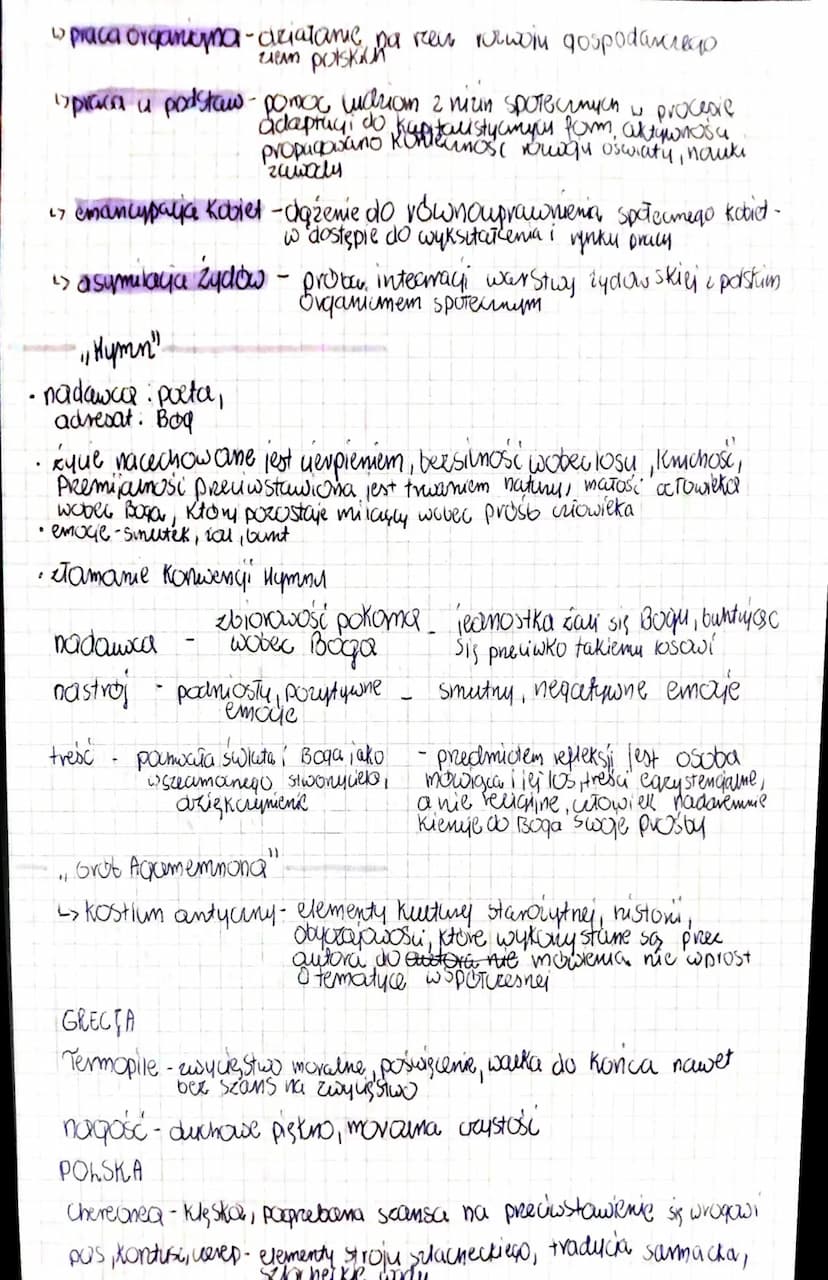 ↳ praca organiczna - działanie na rzecz rozwoju gospodarczego
ziem polskich
↳ praca u podstaw - pomoc ludziom z nizin społecznych w procesie
adaptacji do kapitalistycznych form aktywności
propagowano konieczność rozwoju oświaty, nauki
zawodu
↳ emancypacja kobiet - dążenie do równouprawnienia społecznego kobiet -
w dostępie do wykształcenia i rynku pracy
↳ asymilacja Żydów - próba integracji warstwy żydowskiej z polskim
organizmem społecznym
„Hymn"
• nadawca : poeta,
adresat : Bóg
• życie nacechowane jest cierpieniem, bezsilność wobec losu, kruchość,
Przemijalność przeciwstawiona jest trwaniem natury, małość człowieka
wobec Boga, który pozostaje milczący wobec próśb człowieka
• emocje - smutek, żal, bunt
• złamanie konwencji Hymnu
nadawca - zbiorowość pokorna - jednostka żali się Bogu, buntując
wobec Boga się przeciwko takiemu losowi
nastrój - podniosły, pozytywne - smutny, negatywne emocje
emocje
treść - pochwała świata i Boga jako - przedmiotem refleksji jest osoba
wszechmocnego stworzyciela, mówiąca i jej los, treści egzystencjalne,
dziękczynienie a nie religijne, człowiek nadaremnie
kieruje do Boga swoje prośby
„Grób Agamemnona"
↳ kostium antyczny - elementy kultury starożytnej, historii,
obyczajowości, które wykorzystane są przez
autora do autora nie mówienia nie wprost
o tematyce współczesnej
GRECJA
Termopile - zwycięstwo moralne, poświęcenie, walka do końca nawet
bez szans na zwycięstwo
nagość - duchowe piękno, moralna czystość
POLSKA
Cheronea - klęska, pogrzebana szansa na przeciwstawienie się wrogowi
pas, kontusz, czerep - elementy stroju szlacheckiego, tradycja sarmacka,
szlacheckie wady